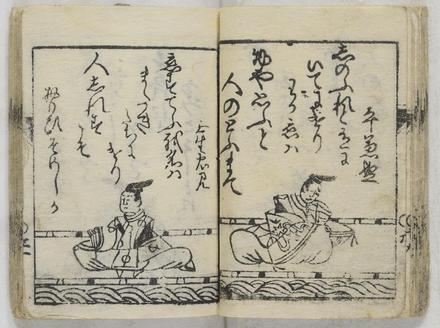 平兼盛
しのふれと色に
いてにけり
わか恋ハ
物や思ふと
人のとふまて
壬生忠見
恋すてふ我名ハ
またき
たちに
けり
人しれすこそ
思ひそめしか